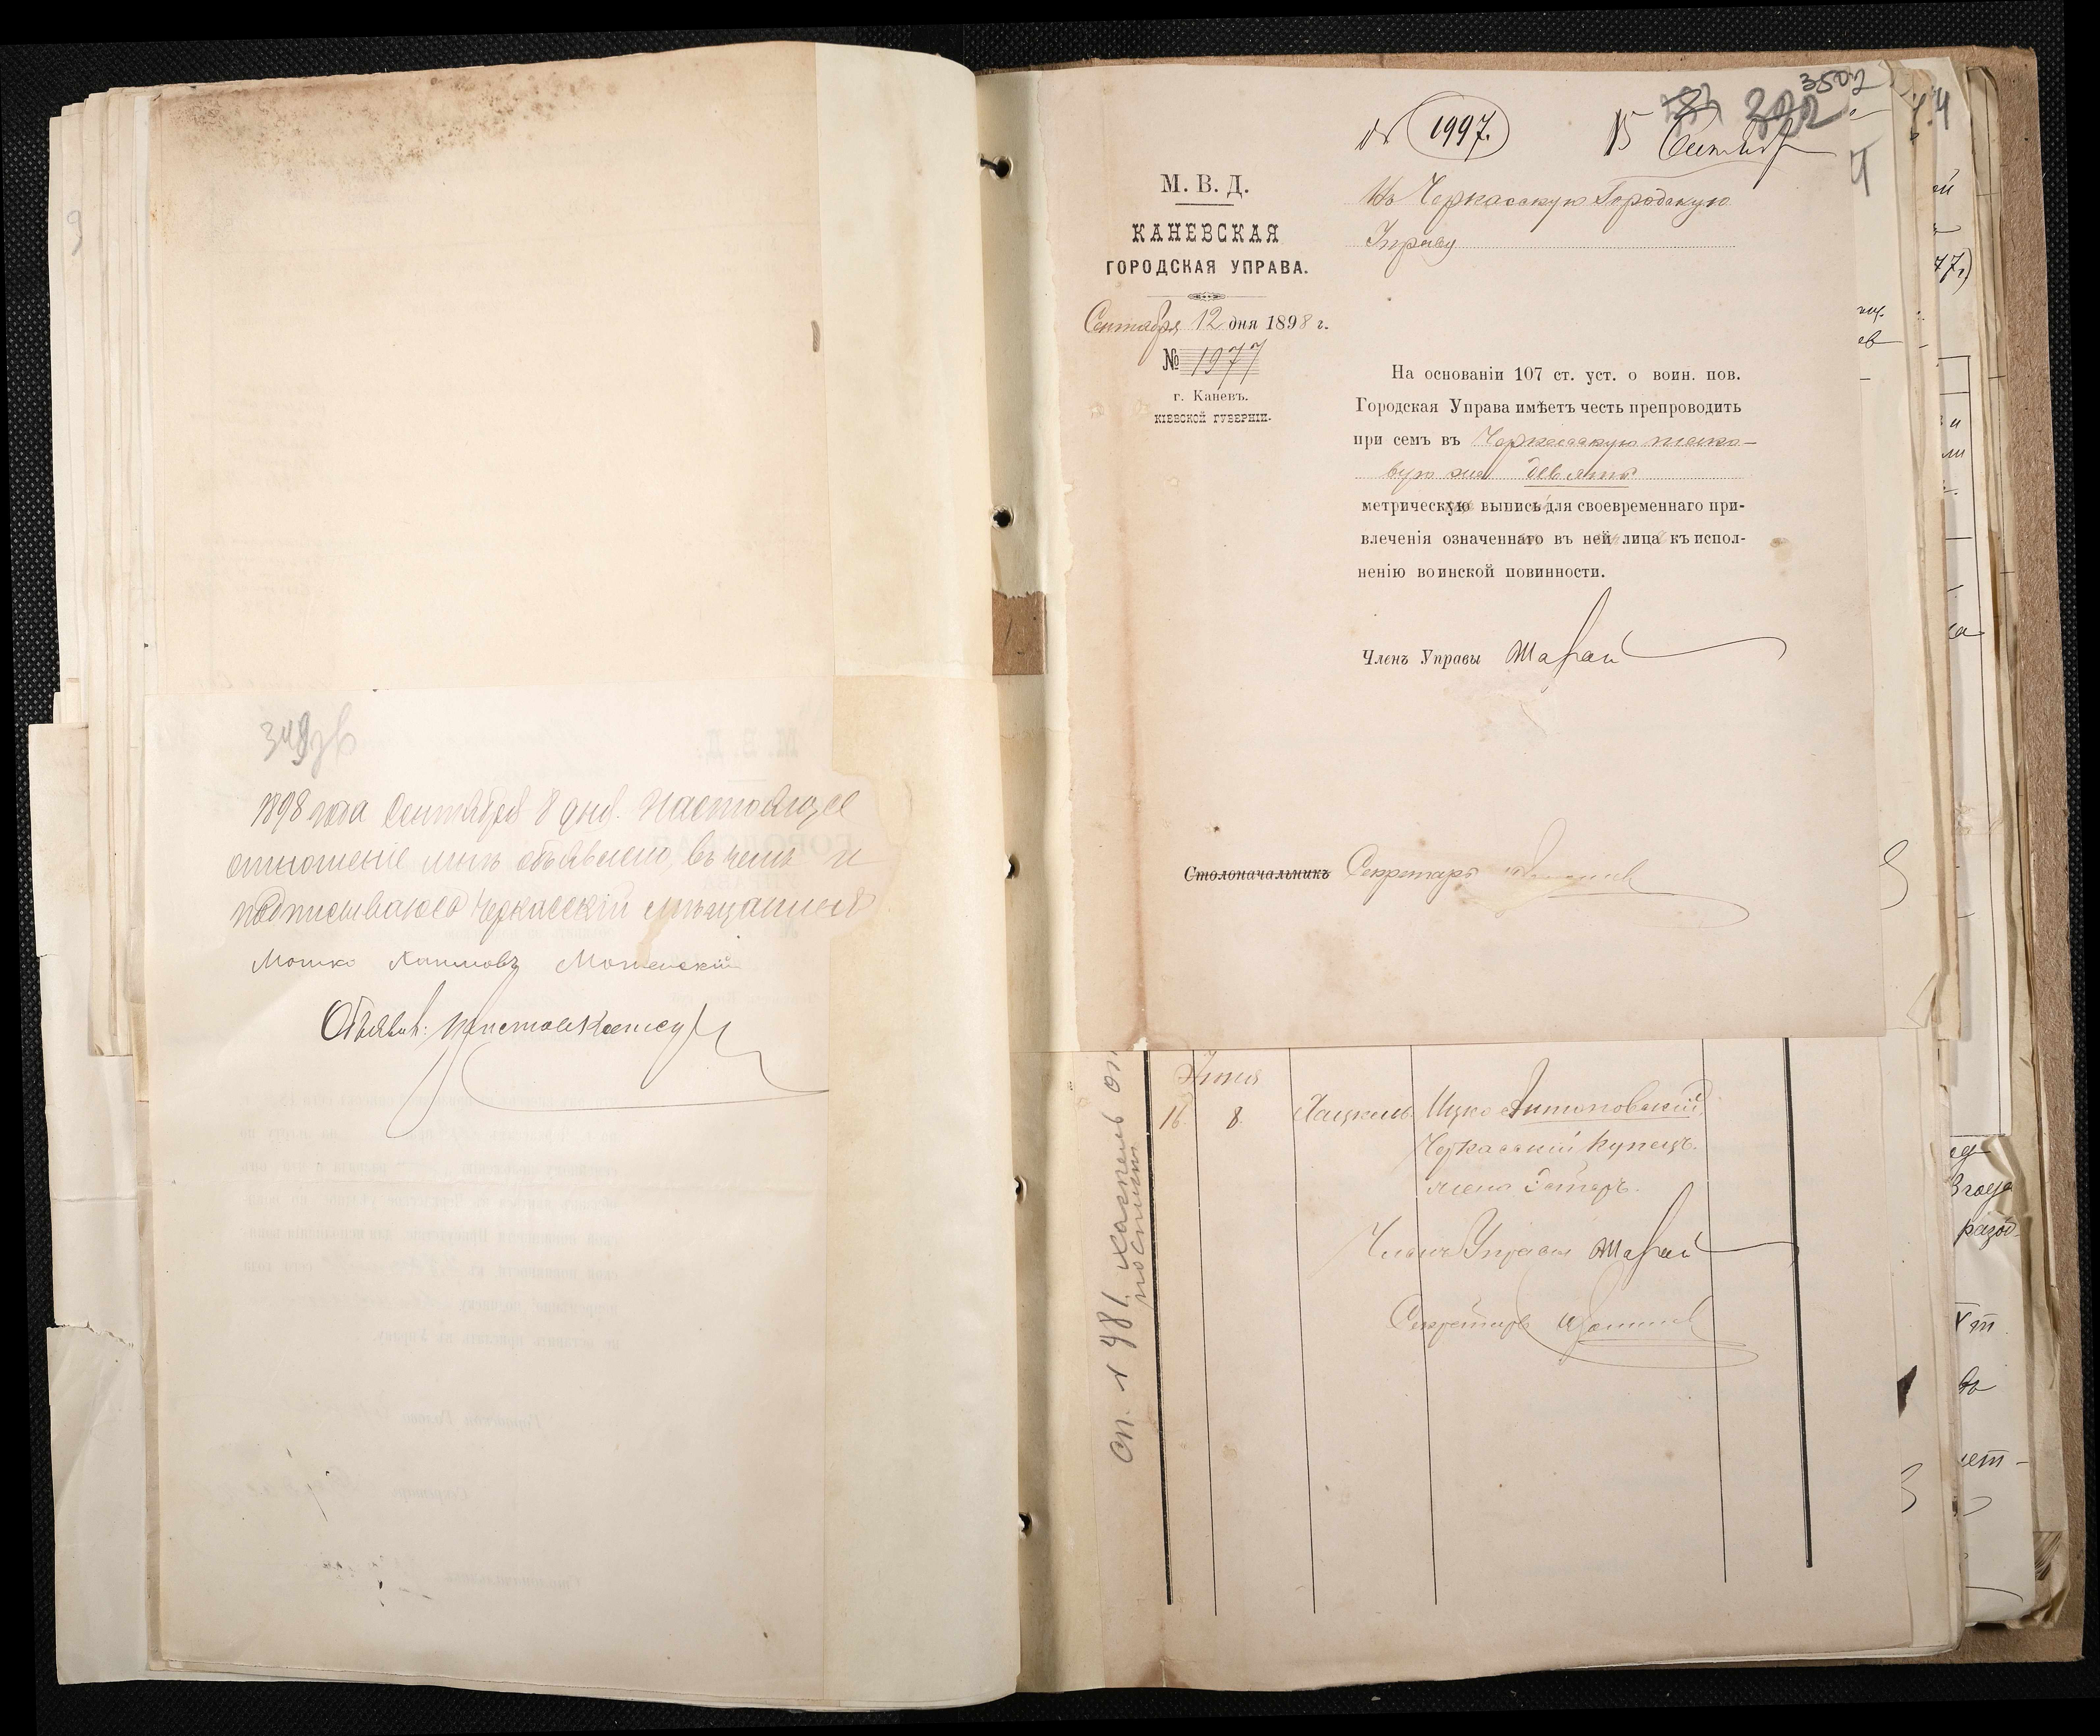 349 об
1898 года Сентября 8 дня. Настоящее
отношеніе мнѣ объявлено, въ чемъ и
подписываюсь Черкасскій мѣщанинъ
Мошко Хаимовъ Мошенскій
Объявил:
3502
322
№ 1997.
15 Сентяб
М. В. Д.
КАНЕВСКАЯ
ГОРОДСКАЯ УПРАВА.
Сентября 12 дня 1898 г.
№ 1977
г. Каневъ.
КІЕВСКОЙ ГУБЕРНІИ.
Въ Черкасскую Городскую
Управу
На основаніи 107 ст. уст. о воин. пов.
Городская Управа имѣетъ честь препроводить
при семъ въ Черкасскую тако-
вую же девять
метрическую выпись для своевременнаго при-
влеченія означеннаго въ ней лица къ испол-
ненію воинской повинности.
Членъ Управы
Столоначальникъ Секретарь
Іюня
16 8 Хацкель Ицко Антоновскій
Черкасскій купецъ.
жена Эстеръ.
Членъ Управы
Секретарь
сп. № 481. Хацкель